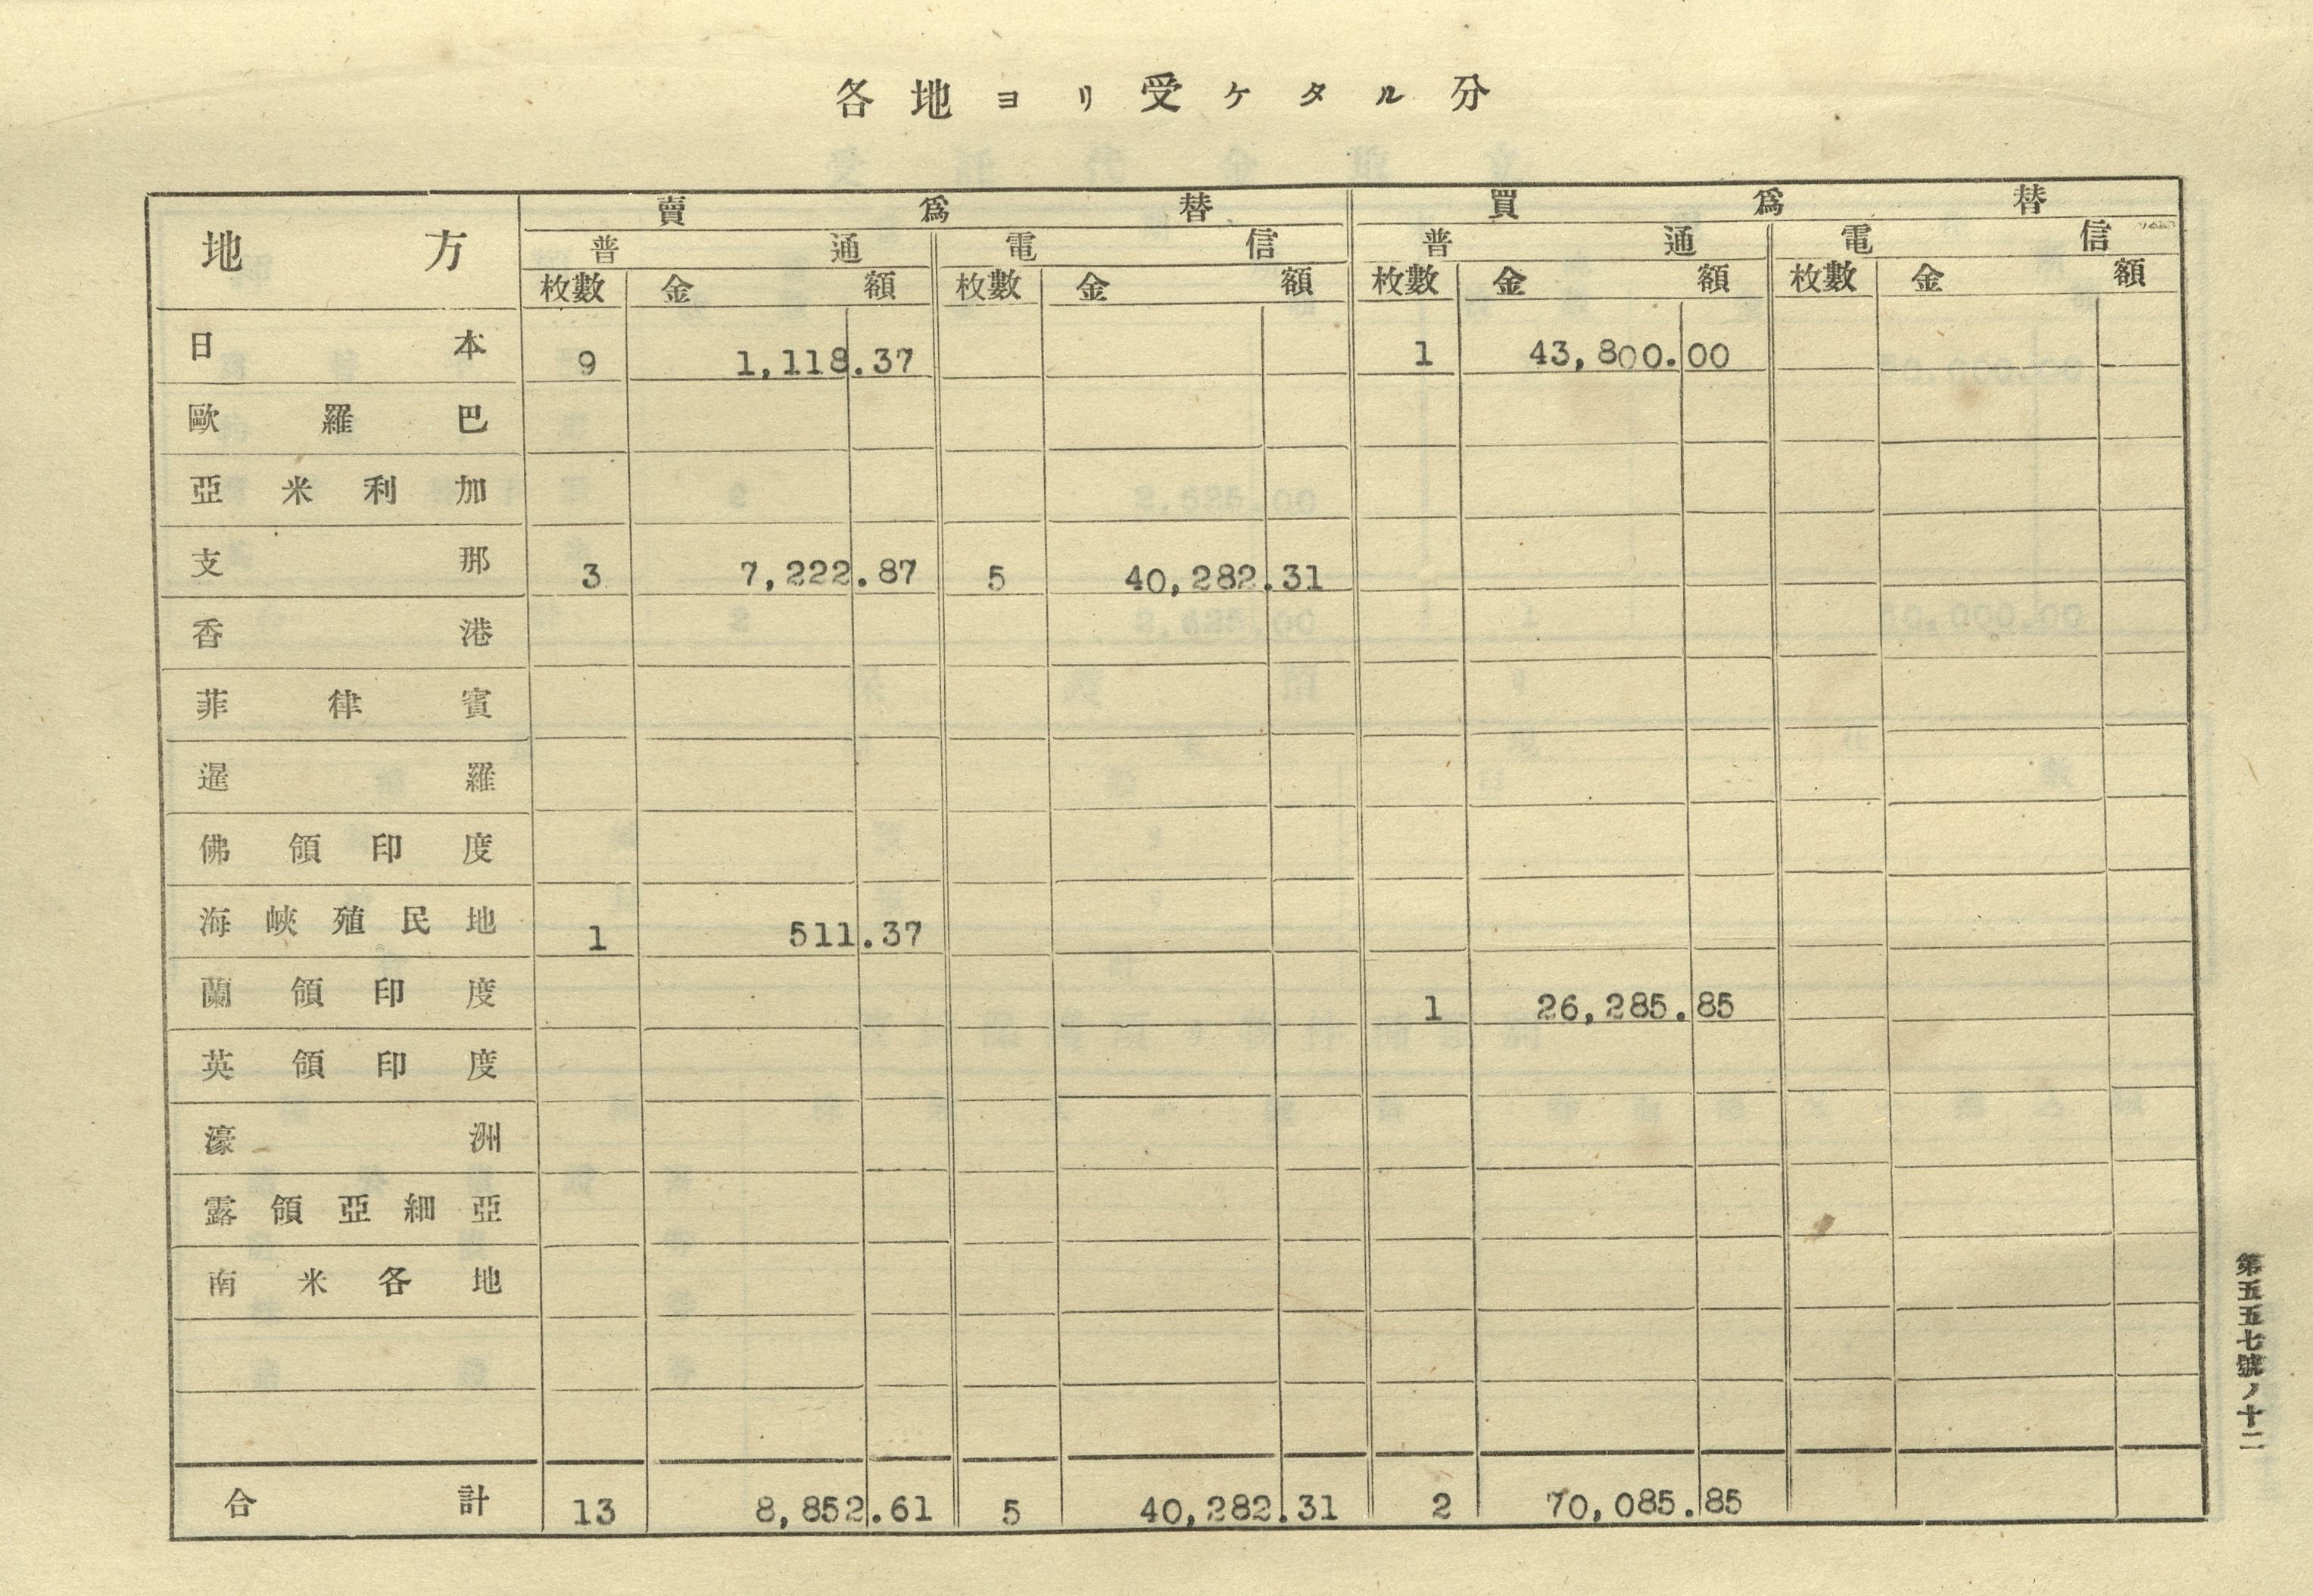 各地ヨリ受ケタル分
地方 賣爲替 買爲替
普通 電信 普通 電信
枚數 金額 枚數 金額 枚數 金額 枚數 金額
日本 9 1,118.37 1 43,800.00
歐羅巴
亞米利加
支那 3 7,222.87 5 40,282.31
香港
菲律賓
暹羅
佛領印度
海峽殖民地 1 511.37
蘭領印度 1 26,285.85
英領印度
濠洲
露領亞細亞
南米各地
合計 13 8,852.61 5 40,282.31 2 70,085.85
第五五七號ノ十二